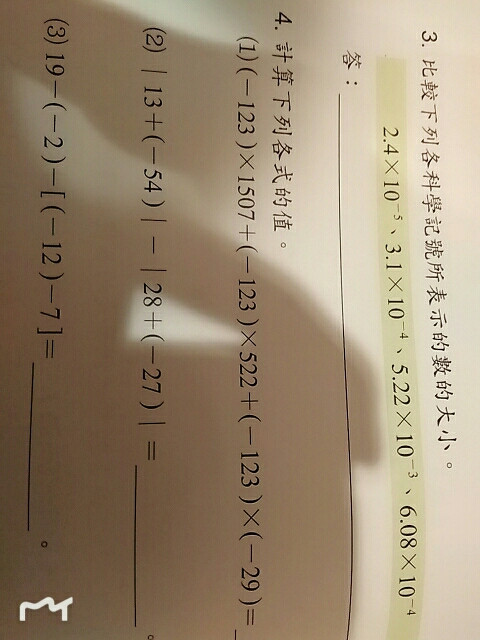 3. 比較下列各科學記號所表示的數的大小。
2.4×10⁻⁵、3.1×10⁻⁴、5.22×10⁻³、6.08×10⁻⁴
答：
4. 計算下列各式的值。
(1)(－123)×1507＋(－123)×522＋(－123)×(－29)＝
(2)｜13＋(－54)｜－｜28＋(－27)｜＝ 。
(3) 19－(－2)－[(－12)－7]＝ 。